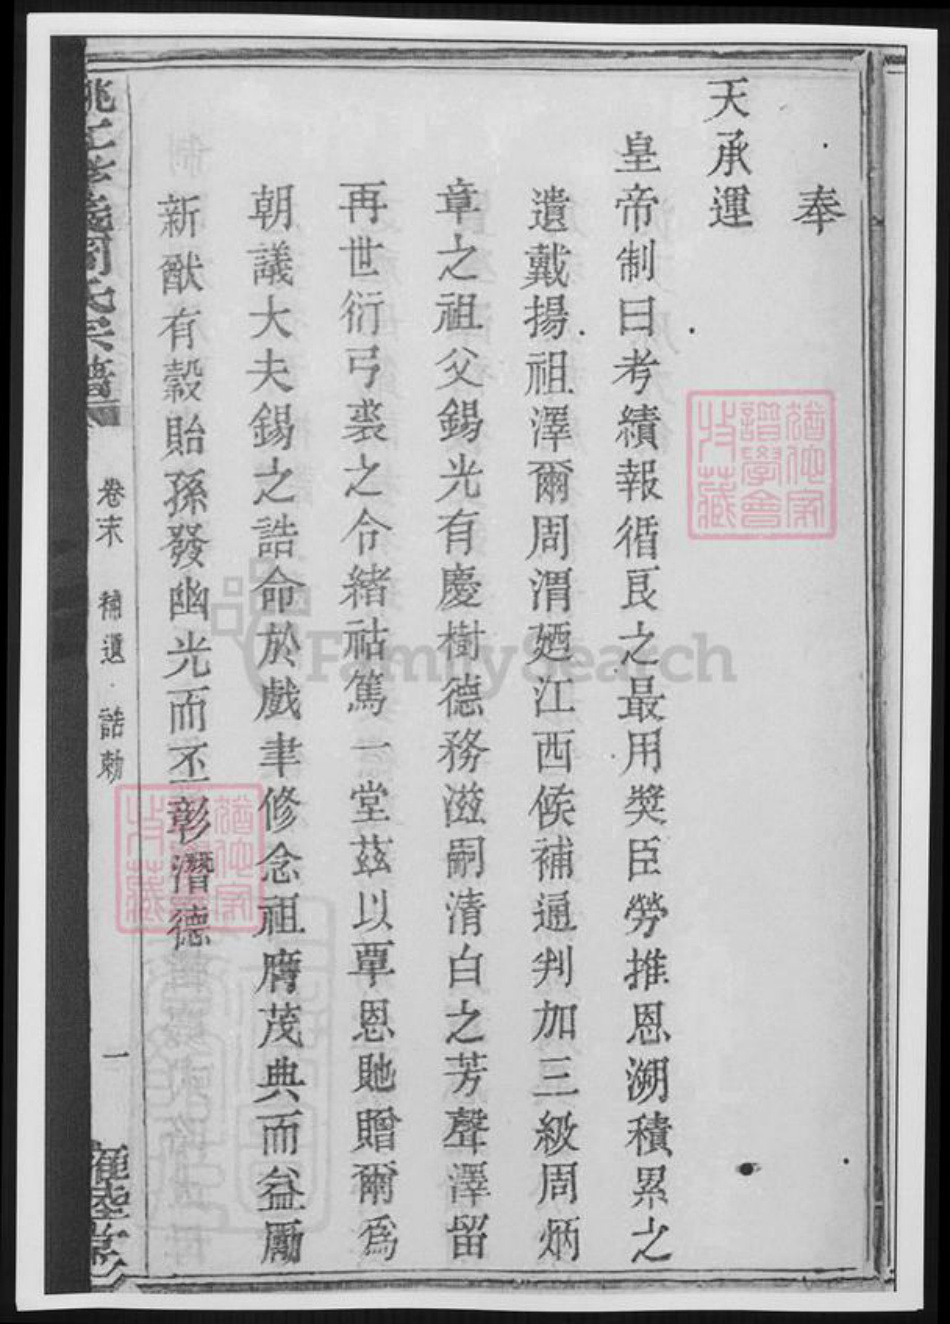 奉
天承運
皇帝制曰考績報循良之最用獎臣勞推恩溯積累之
遺戴揚祖澤爾周渭廼江西候補通判加三級周炳
章之祖父錫光有慶樹德務滋嗣清白之芳聲澤留
再世衍弓裘之令緒祜篤一堂茲以覃恩貤贈爾爲
朝議大夫錫之誥命於戲聿修念祖膺茂典而益勵
新猷有穀貽孫發幽光而丕彰潛德
卷末 補遺·誥勅 一
譜學會
收藏
FamilySearch